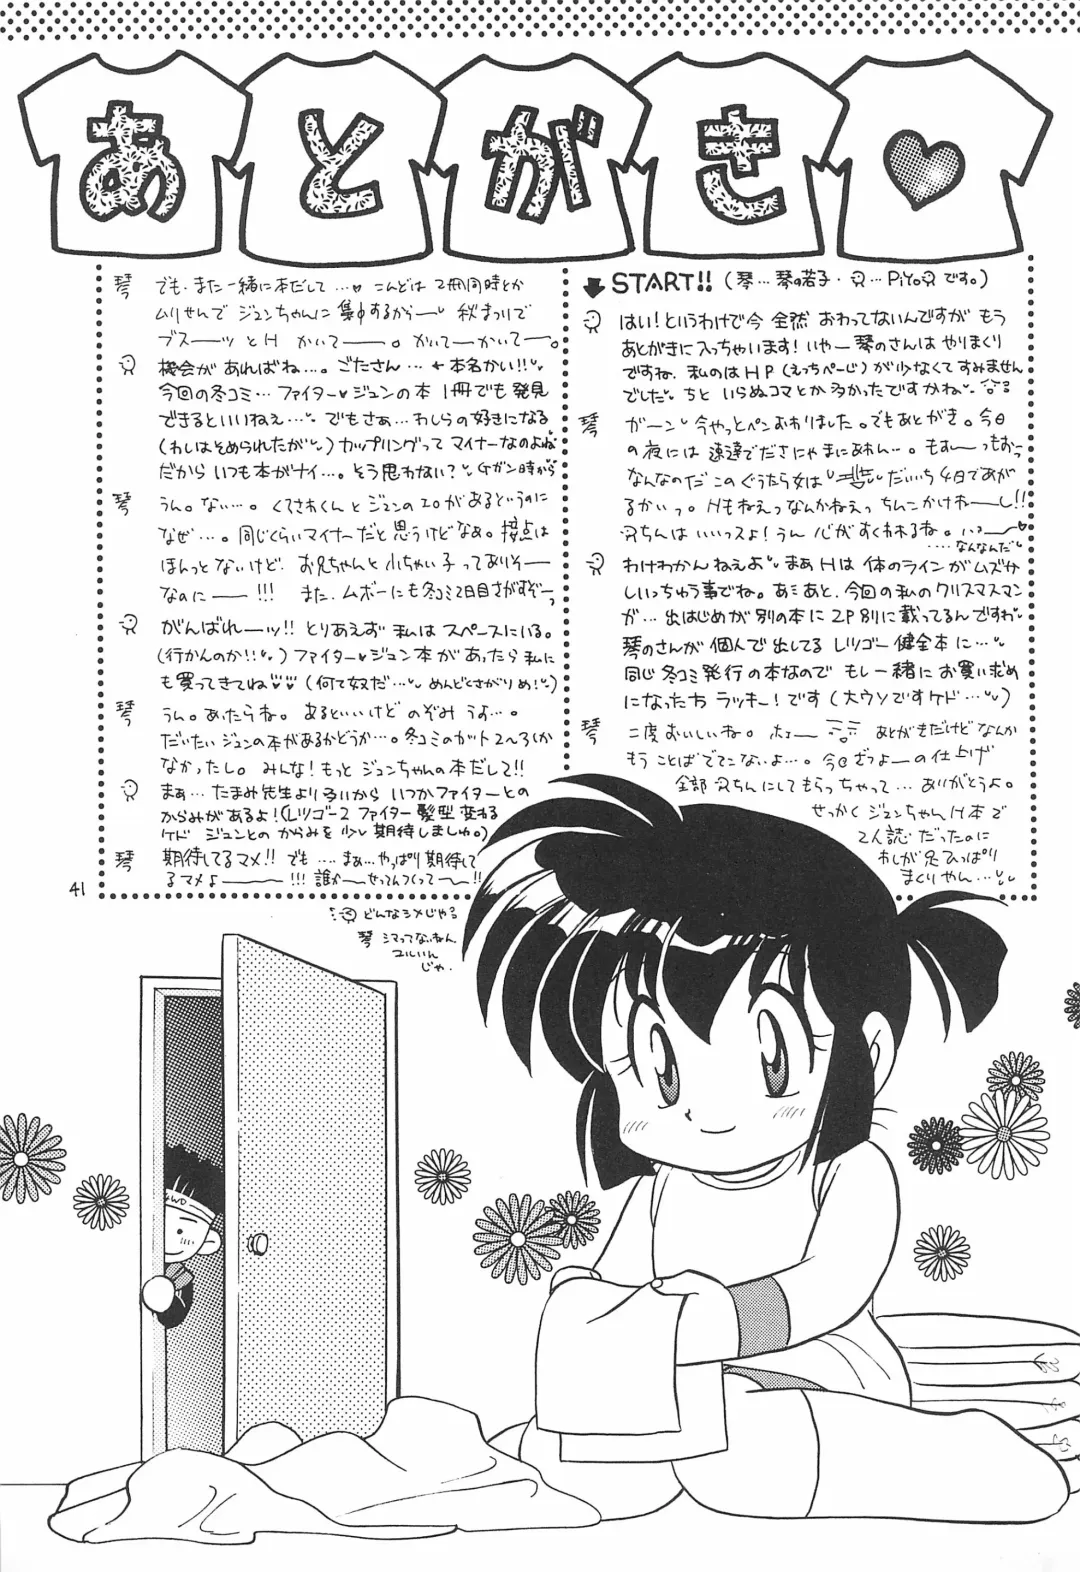 あとがき♥
START!! (琴…琴の若子・…PiYo です。)
はい!というわけで今 全然 おわってないんですが もう
あとがきに入っちゃいます!いやー琴のさんは やりまくり
ですね、私のは HP(えっちページ)が少なくてすみません
でした。ちと いらぬコマとか多かったですかね。
琴 ガーン 今やっとペンおわりました。でもあとがき。今日
の夜には 速達でださにゃまにあわん…。もおーっもおーっ
なんなのだ このぐうたら女は だいいち4日であが
るかいっ。Hもねえっなんかねえっ ちんこかけねーし!!
ちんは いいっスよ!うん 心がすくわれるね。
….なんなんだ
わけわかんねえよ まぁHは 体のラインがムズか
しいっちゅう事でね。あとあと、今回の私のクリスマスマン
が… 出はじめが別の本に2P別に載ってるんですわ
琴のさんが 個人で出してる レツゴー健全本に…
同じ冬コミ発行の本なので もし一緒にお買い求め
になった方 ラッキー!です(大ウソですケド…)
琴 二度おいしいね。 あとがきだけどなんか
もう ことばでてこないよ…。今日ざつよーの仕上げ
全部 ちんにしてもらっちゃって… ありがとうよ。
せっかく ジュンちゃんH本で
2人誌だったのに
わしが足ひっぱり
まくりやん…
琴 でも、また一緒に本だして…♥ こんどは 2冊同時とか
ムリせんで ジュンちゃんに 集中するからー 秋まつりで
ブスーッとH かいてー。かいてーかいてー。
機会が あればね…。ごたさん…←本名かい!!
今回の冬コミ… ファイター♥ジュンの本 1冊でも発見
できるといいねぇ… でもさぁ…わしらの好きになる
(わしはそめられたが)カップリングって マイナーなのよね
だから いつも本がナイ…。そう思わない? Gガン時から
琴 うん。ない…。くさくんと ジュンの があるというのに
なぜ…。同じくらいマイナーだと思うけどなぁ。接点は
ほんっとないけど、お兄ちゃんと小ちゃい子ってありそー
なのにー!!! また、ムボーにも冬コミ2日目さがすぞーっ
がんばれーッ!! とりあえず 私は スペースにいる。
(行かんのか!!)ファイター♥ジュン本が あったら 私に
も買ってきてね (何て奴だ… めんどくさがりめ!)
琴 うん。あったらね。あるといいけど のぞみ うすっ…。
だいたい ジュンの本があるかどうか…。冬コミのカット 2〜3しか
なかったし。みんな! もっと ジュンちゃんの本だして!!
まぁ… たまみ先生より いつかファイターとの
からみがあるよ!(レツゴー2 ファイター 髪型 変わる
ケド ジュンとの からみを少し期待しましゅ。)
琴 期待してるマメ!! でも….まぁ…やっぱり 期待して
るマメよー!!! 誰かーせってんつくってー!!
どんなシメじゃる
琴 シマってないねん
ユルいん
じゃ.
41